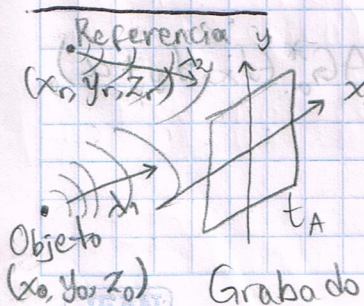 Referencia
y
λ2
(xr, yr, zr)
x
λ1
tA
Objeto
(x0, y0, z0)
Grabado